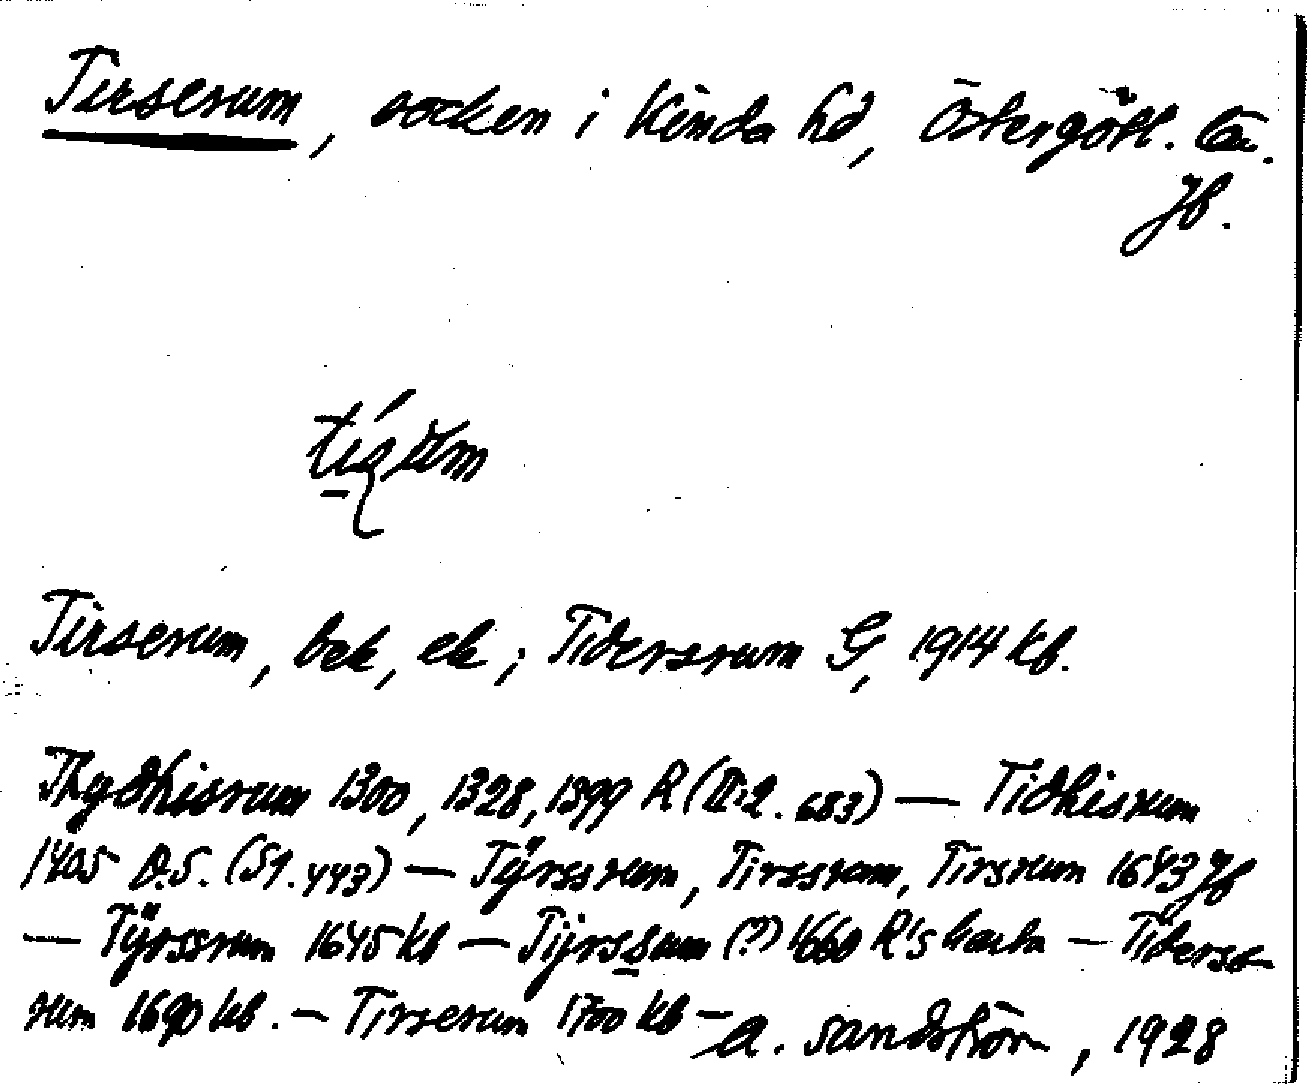 Tirserum, socken i Kinda hd, Östergötl. län.
Jb.
Tirserum, bek, ek; Tidersrum G, 1914 kb.
Thydhisrum 1300, 1328, 1399 R (II:2. 683) — Tidhisrum
1405 D.S. (S1. 443) — Tÿrssrum, Tirssrum, Tirsrum 1643 Jb
— Tÿrssrum 1645 kb — Tÿrssum (?) 1660 R's karta — Tiderss-
rum 1690 kb. — Tirserum 1700 kb —
A. Sandström, 1928